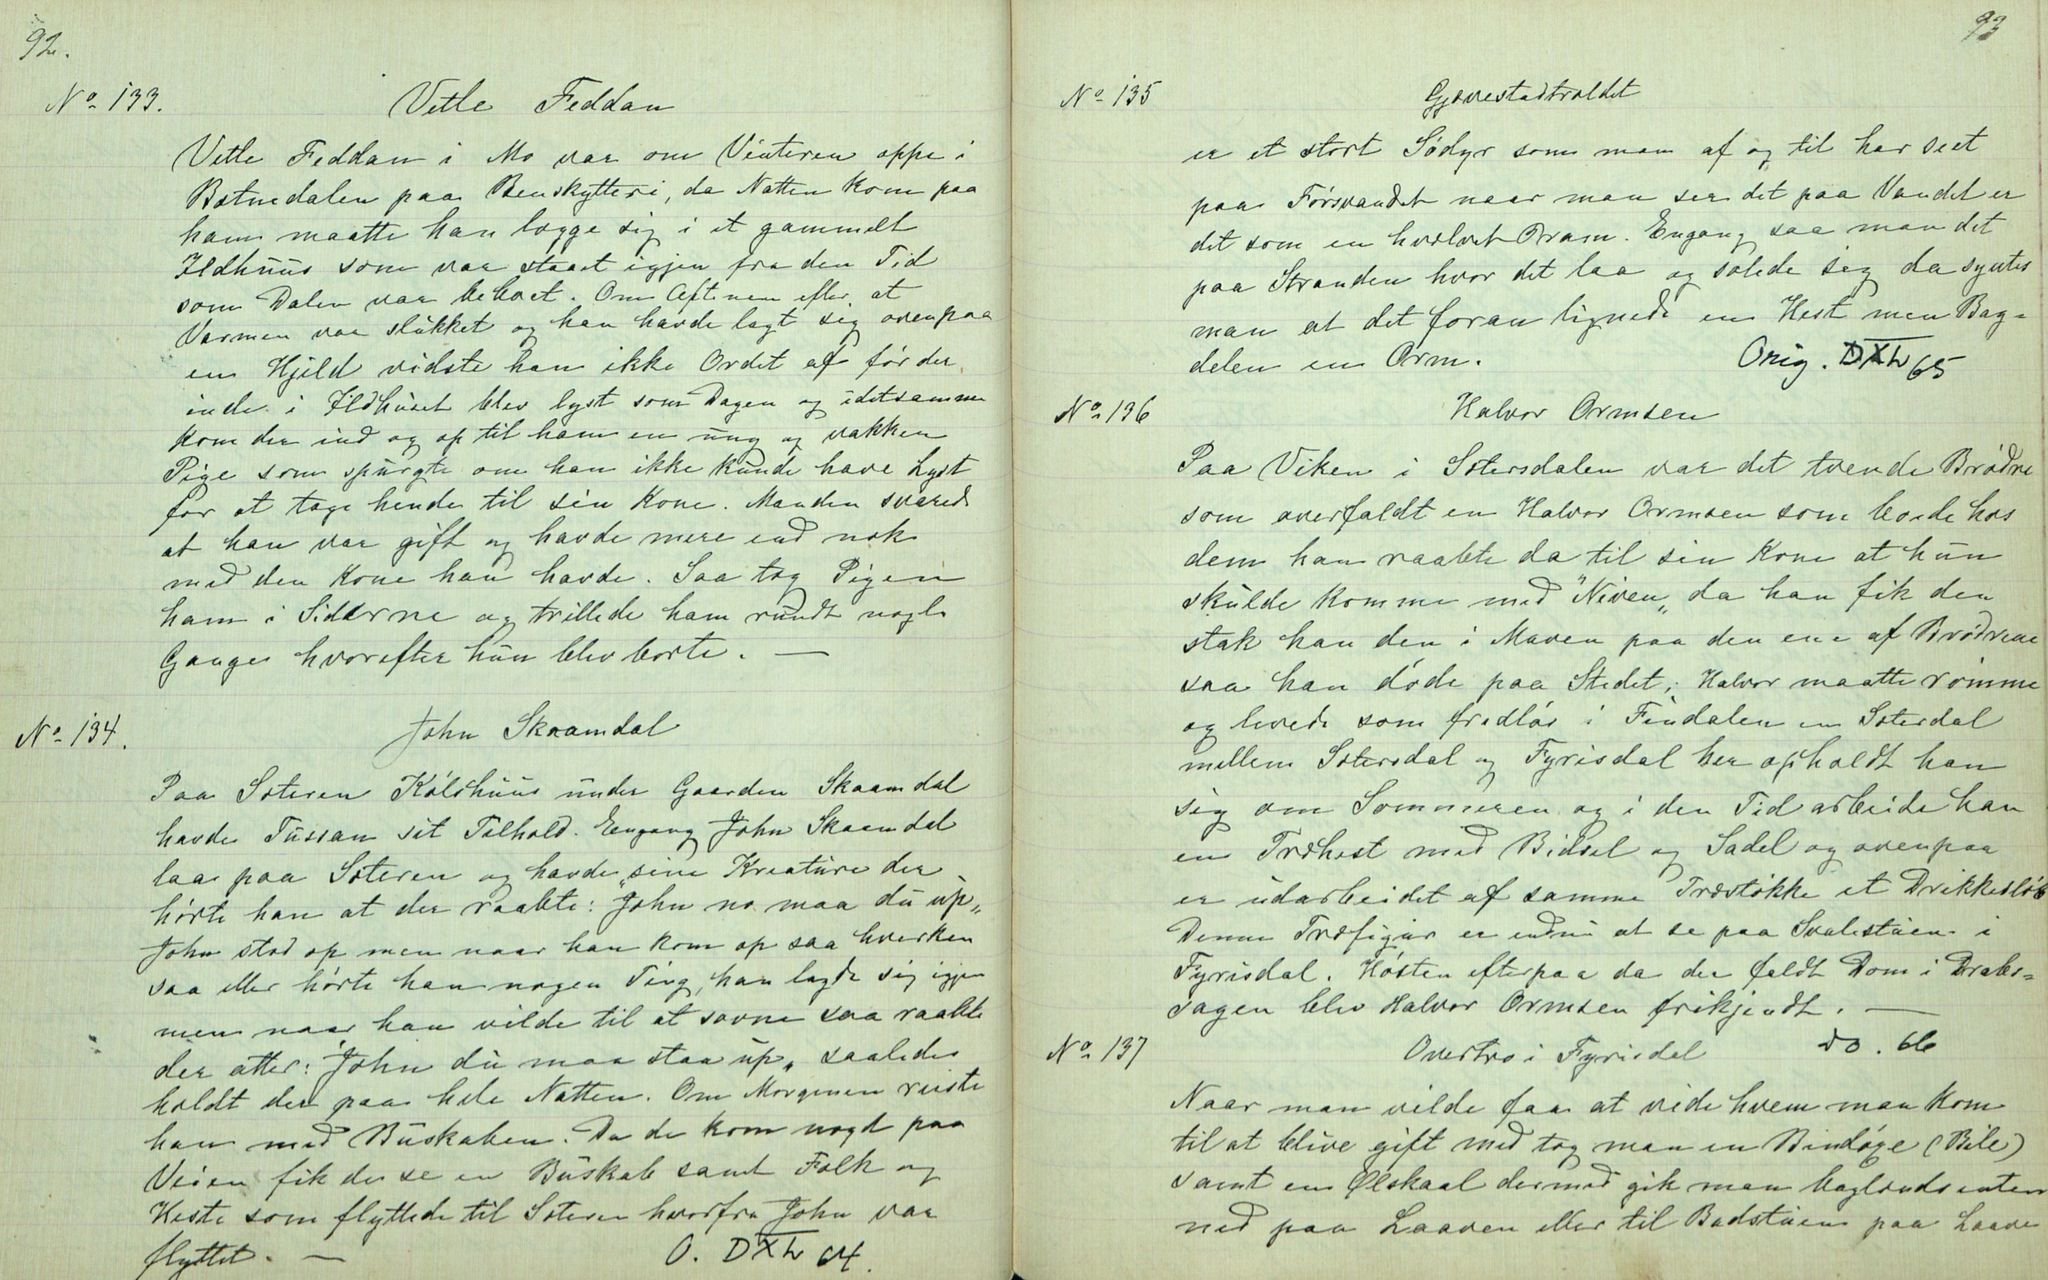 92.
No 133. Vetle Feddan
Vetle Feddan i Mo var om Vinteren oppe i
Bætuedalen paa Renskytteri, da Natten kom paa
ham maatte han lægge sig i et gammelt
Ildhuus som var staaet igjen fra den Tid
som Dalen var beboet. Om Aftenen efter at
Varmen var slukket og han havde lagt sig ovenpaa
en Hjeld vidste han ikke Ordet af før der
inde i Ildhuset blev lyst som Dagen og idetsamme
kom der ind og op til ham en ung og vakker
Pige som spurgte om han ikke kunde have Lyst
for at tage hende til sin Kone. Manden svarede
at han var gift og havde mere end nok
med den Kone han havde. Saa tog Pigen
ham i Siderne og trillede ham rundt nogle
Gange hvorefter hun blev borte. —
No 134. John Skaamdal
Paa Sæteren Kålshuus under Gaarden Skaamdal
havde Tussan sit Tilhold. Engang John Skaamdal
laa paa Sæteren og havde sine Kreature der
hørte han at der raabte: "John no maa du up"
John stod op men naar han kom op saa hverken
saa eller hørte han nogen Ting, han lagde sig igjen
men naar han vilde til at sovne saa raabte
der atter: "John du maa staa up" saaledes
holdt det paa hele Natten. Om Morgenen reiste
han med Buskaben. Da de kom noget paa
Veien fik de se en Buskab samt Folk og
Heste som flyttede til Sæteren hvorfra John var
flyttet. — O. DXL 64.
93
No 135 Gjøvestadtroldet
er et stort Sødyr som man af og til har seet
paa Førsvandet naar man ser det paa Vandet er
det som en hvælvet Pram. Engang saa man det
paa Stranden hvor det laa og solede sig da syntes
man at det foran lignede en Hest men Bag-
delen en Orm. Orig. DXL 65
No 136 Halvor Ormsen
Paa Viken i Sætersdalen var det tvende Brødre
som overfaldt en Halvor Ormsen som boede hos
dem han raabte da til sin Kone at hun
skulde komme med "Niven" da han fik den
stak han den i Maven paa den ene af Brødrene
saa han døde paa Stedet; Halvor maatte rømme
og levede som fredløs i Findalen en Sæterdal
mellem Sætersdal og Fyrisdal her opholdt han
sig om Sommeren og i den Tid arbeide han
en Træhest med Bidsel og Sadel og ovenpaa
er udarbeidet af samme Træstøkke et Drikkesløb
Denne Træfigur er endnu at se paa Svalestuen i
Fyrisdal. Høsten efterpaa da der faldt Dom i Drabs-
sagen blev Halvor Ormsen frikjendt. —
No 137 Overtro i Fyrisdal do. 66
Naar man vilde faa at vide hvem man kom
til at blive gift med tog man en Bindøxe (Bile)
samt en Ølskaal dermed gik man baglænds enten
ned paa Laaven eller til Badstuen paa Laave